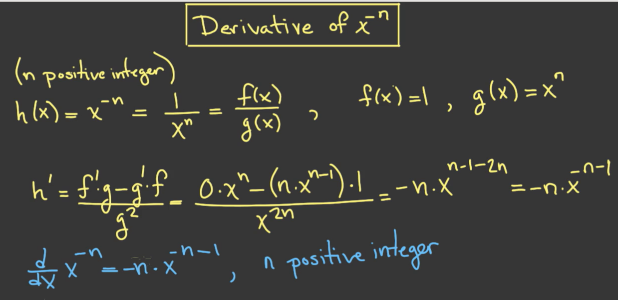 Derivative of x⁻ⁿ
(n positive integer)
h(x) = x⁻ⁿ = 1/xⁿ = f(x)/g(x) , f(x) = 1 , g(x) = xⁿ
h' = (f'g - g'f)/g² = (0·xⁿ - (n·xⁿ⁻¹)·1)/x²ⁿ = -n·xⁿ⁻¹⁻²ⁿ = -n·x⁻ⁿ⁻¹
d/dx x⁻ⁿ = -n·x⁻ⁿ⁻¹ , n positive integer